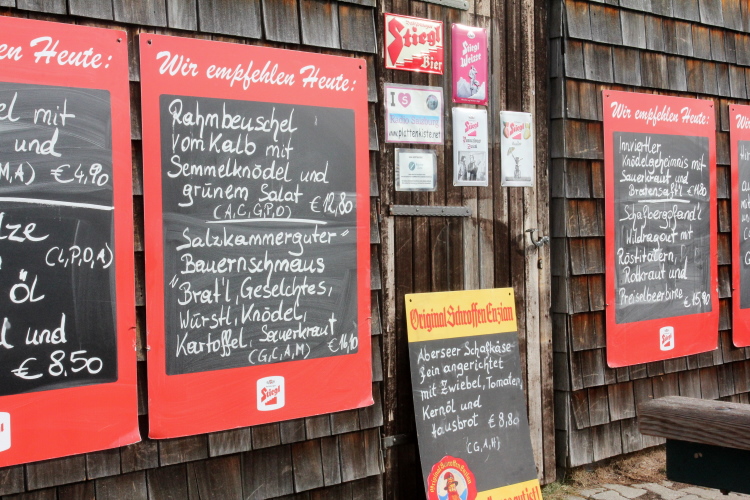 Heute:
el mit
und
M, A) € 4,90
lze
(L, P, D, A)
ÖL
d und
€ 8,50
Wir empfehlen Heute:
Rahmbeuschel
vom Kalb mit
Semmelknödel und
grünem Salat
(A, C, G, P, O) € 12,80
Salzkammerguter"
Bauernschmaus
"Brat'l, Geselchtes,
Würstl, Knödel,
Kartoffel, Sauerkraut
(G, C, A, M) € 14,10
Stiegl
Stiegl
Bier
Stiegl
Weisse
I
www.plattenkiste.net
Stiegl
Stiegl
Original Schroffen Enzian
Aberseer Schafkäse
fein angerichtet
mit Zwiebel, Tomaten,
Kernöl und
Hausbrot € 8,80
(G, A, H)
Wir empfehlen Heute:
Innviertler
Knödelgeheimnis mit
Sauerkraut und
Bratensaft'l
Schafbergpfand'l
Wildragout mit
Röstitalern,
Rotkraut und
Preiselbeerbirne € 15,90
Stiegl
Wir